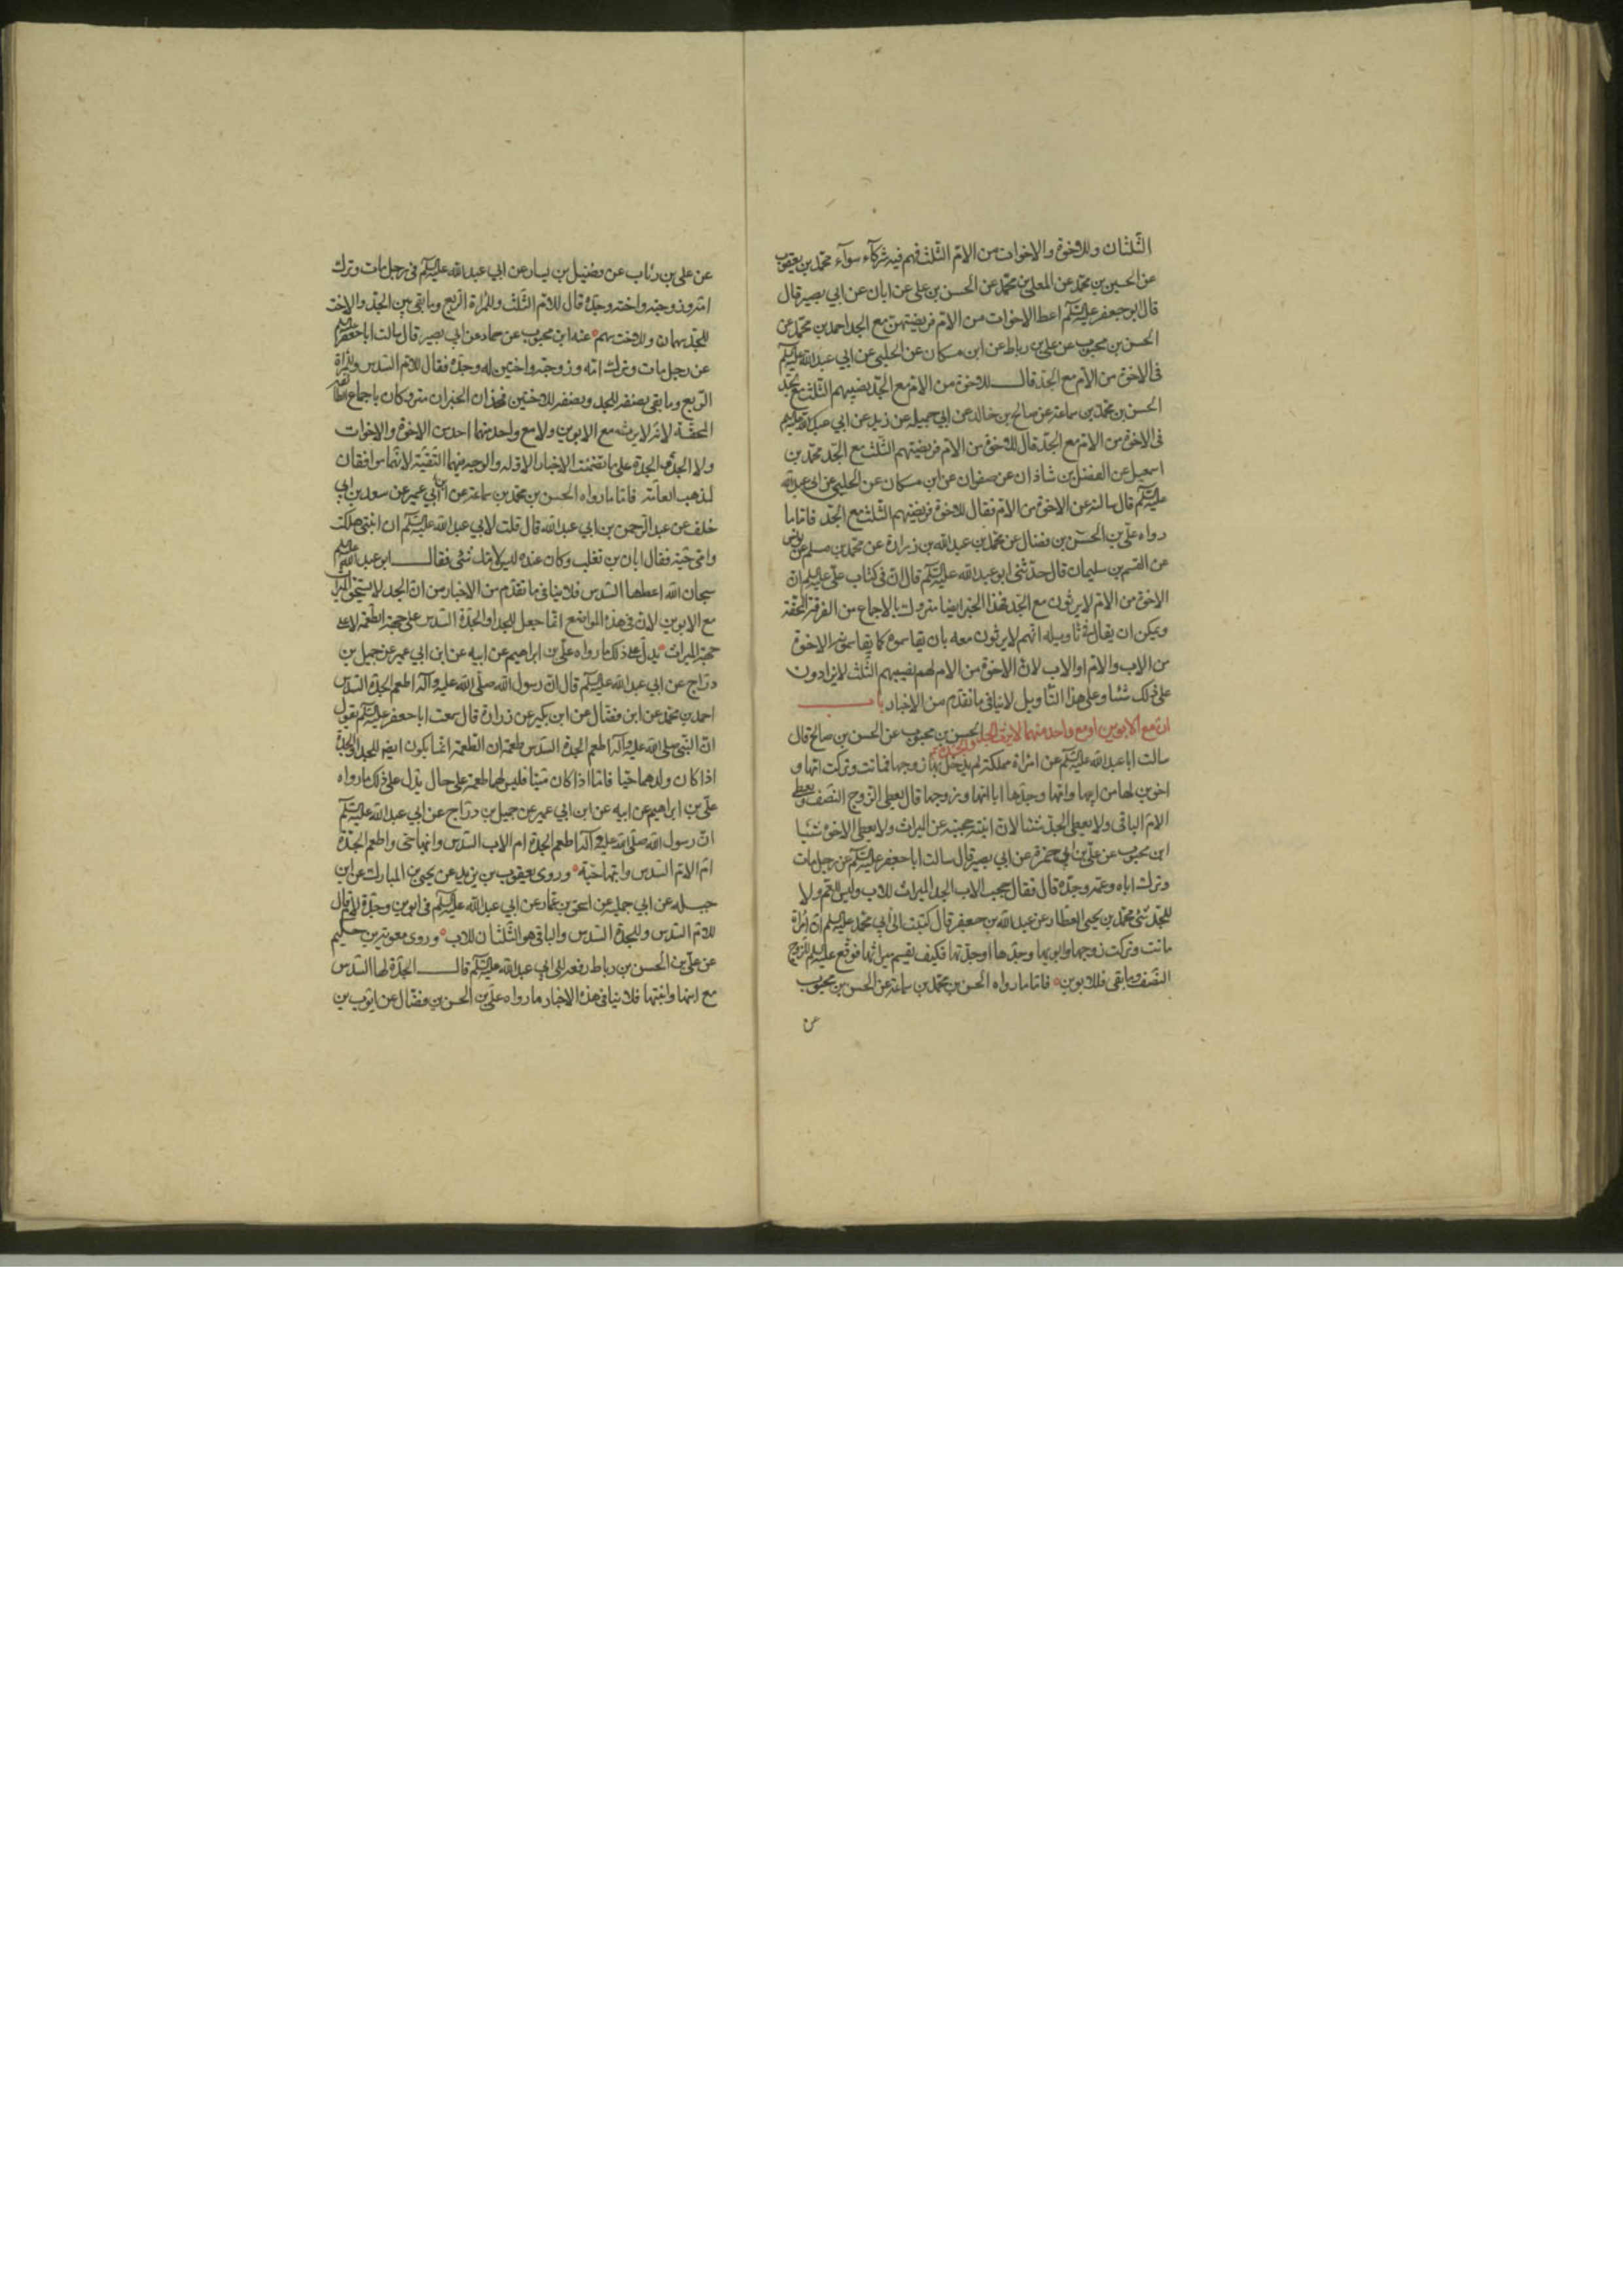 الثلثان وللاخوة والاخوات من الام الثلث فهم فيه شركآء سوآء محمد بن يعقوب
عن الحسين بن محمد عن المعلى بن محمد عن الحسن بن على عن ابان عن ابي بصير قال
قال ابو جعفر عليه السلم اعط الاخوات من الام فريضتهن مع الجد احمد بن محمد عن
الحسن بن محبوب عن على بن رباط عن ابن مسكان عن الحلبي عن ابي عبد الله عليه السلم
فى الاخوة من الام مع الجد قال للاخوة من الام مع الجد نصيبهم الثلث مع الجد
الحسن بن محمد بن سماعة عن صالح بن خالد عن ابي جميله عن زيد عن ابي عبد الله عليه السلم
فى الاخوة من الام مع الجد قال للاخوة من الام فريضتهم الثلث مع الجد محمد بن
اسمعيل عن الفضل بن شاذان عن صفوان عن ابن مسكان عن الحلبي عن ابي عبد الله
عليه السلم قال سالته عن الاخوة من الام فقال للاخوة فريضتهم الثلث مع الجد فاما ما
رواه على بن الحسن بن فضال عن محمد بن عبد الله بن زرارة عن محمد بن مسلم عن يونس
عن القسم بن سليمان قال حدثنى ابو عبد الله عليه السلم قال ان فى كتاب على عليه السلم ان
الاخوة من الام لا يرثون مع الجد فهذا الخبر ايضا متروك بالاجماع من الفرقة المحقة
ويمكن ان يقال فى تاويله انهم لا يرثون معه بان يقاسموه كما يقاسمونه الاخوة
من الاب والام او الاب لان الاخوة من الام لهم نصيبهم الثلث لا يزادون
على ذلك شئا وعلى هذا التاويل لا ينافى ما تقدم من الاخبار باب
ان مع الابوين او مع واحد منهما لا يرث الجد والجدة الحسن بن محبوب عن الحسن بن صالح قال
سالت ابا عبد الله عليه السلم عن امراة مملكة لم يدخل بها زوجها فماتت وتركت امها و
اخوين لها من ابيها وامها وجدها ابا امها وزوجها قال يعطى الزوج النصف ويعطى
الام الباقى ولا يعطى الجد شئا لان ابنته حجبته عن الميراث ولا يعطى الاخوة شئا
ابن محبوب عن على بن ابي حمزة عن ابي بصير قال سالت ابا جعفر عليه السلم عن رجل مات
وترك اباه وعمه وجده قال فقال حجب الاب الجد الميراث للاب وليس للعم ولا
للجد شئ محمد بن يحيى العطار عن عبد الله بن جعفر قال كتبت الى ابي محمد عليه السلم ان امراة
ماتت وتركت زوجها وابويها وجدها او جدتها فكيف يقسم ميراثها فوقع عليه السلم للزوج
النصف وما بقى فللابوين فاما ما رواه الحسن بن محمد بن سماعة عن الحسن بن محبوب
عن
عن على بن رئاب عن فضيل بن يسار عن ابي عبد الله عليه السلم فى رجل مات وترك
امه وزوجته واخته وجده قال للام الثلث وللمراة الربع وما بقى بين الجد والاخت
للجد سهمان وللاخت سهم عنه ابن محبوب عن حماد عن ابي بصير قال سالت ابا جعفر عليه السلم
عن رجل مات وترك امه وزوجته واختين له وجده فقال للام السدس وللمراة
الربع وما بقى نصفه للجد ونصفه للاختين فهذان الخبران متروكان باجماع الطائفة
المحقة لانه لا يرث مع الابوين ولا مع واحد منهما احد من الاخوة والاخوات
ولا الجد والجدة على ما تضمنت الاخبار الاوله والوجه فيهما التقية لانهما موافقان
لمذهب العامة فاما ما رواه الحسن بن محمد بن سماعة عن ابن ابي عمير عن سعد بن ابي
خلف عن عبد الرحمن بن ابي عبد الله قال قلت لابي عبد الله عليه السلم ان ابنتى هلكت
وامى حية فقال ابان بن تغلب وكان عنده ليس لامك شئ فقال ابو عبد الله عليه السلم
سبحان الله اعطها السدس فلا ينافى ما تقدم من الاخبار من ان الجد لا يستحق الميراث
مع الابوين لان فى هذه المواضع انما جعل للجد او الجدة السدس على جهة الطعمة لا على
جهة الميراث يدل على ذلك ما رواه على بن ابراهيم عن ابيه عن ابن ابي عمير عن جميل بن
دراج عن ابي عبد الله عليه السلم قال ان رسول الله صلى الله عليه وآله اطعم الجدة السدس
احمد بن محمد عن ابن فضال عن ابن بكير عن زرارة قال سمعت ابا جعفر عليه السلم يقول
ان النبى صلى الله عليه وآله اطعم الجدة السدس طعمة ان الطعمة انما يكون ايضا للجد او الجدة
اذا كان ولدهما حيا فاما اذا كان ميتا فليس لهما طعمة على حال يدل على ذلك ما رواه
على بن ابراهيم عن ابيه عن ابن ابي عمير عن جميل بن دراج عن ابي عبد الله عليه السلم
ان رسول الله صلى الله عليه وآله اطعم الجدة ام الاب السدس وابنها حى واطعم الجدة
ام الام السدس وابنتها حية وروى يعقوب بن يزيد عن يحيى بن المبارك عن ابن
جبله عن ابي جميله عن اسحق بن عمار عن ابي عبد الله عليه السلم فى ابوين وجدة لام قال
للام السدس وللجدة السدس والباقى هو الثلثان للاب وروى معوية بن حكيم
عن على بن الحسن بن رباط رفعه الى ابي عبد الله عليه السلم قال الجدة لها السدس
مع ابنها وابنتها فلا ينافى هذه الاخبار ما رواه على بن الحسن بن فضال عن ايوب بن